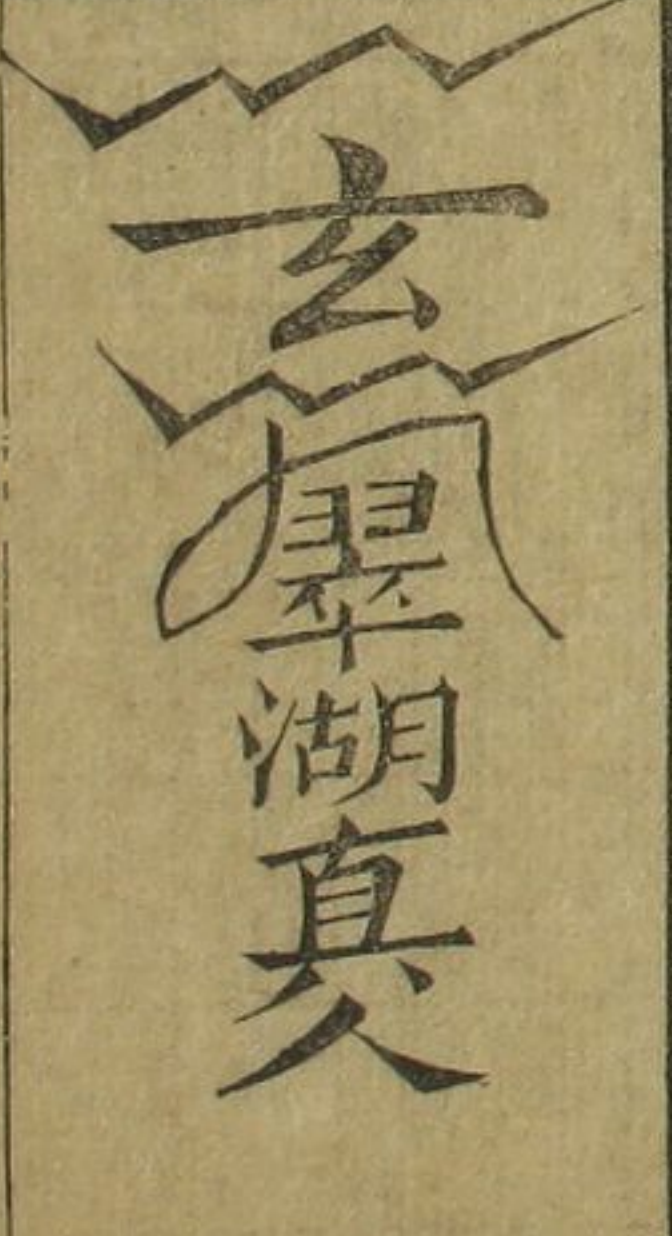 玄翠湖真人